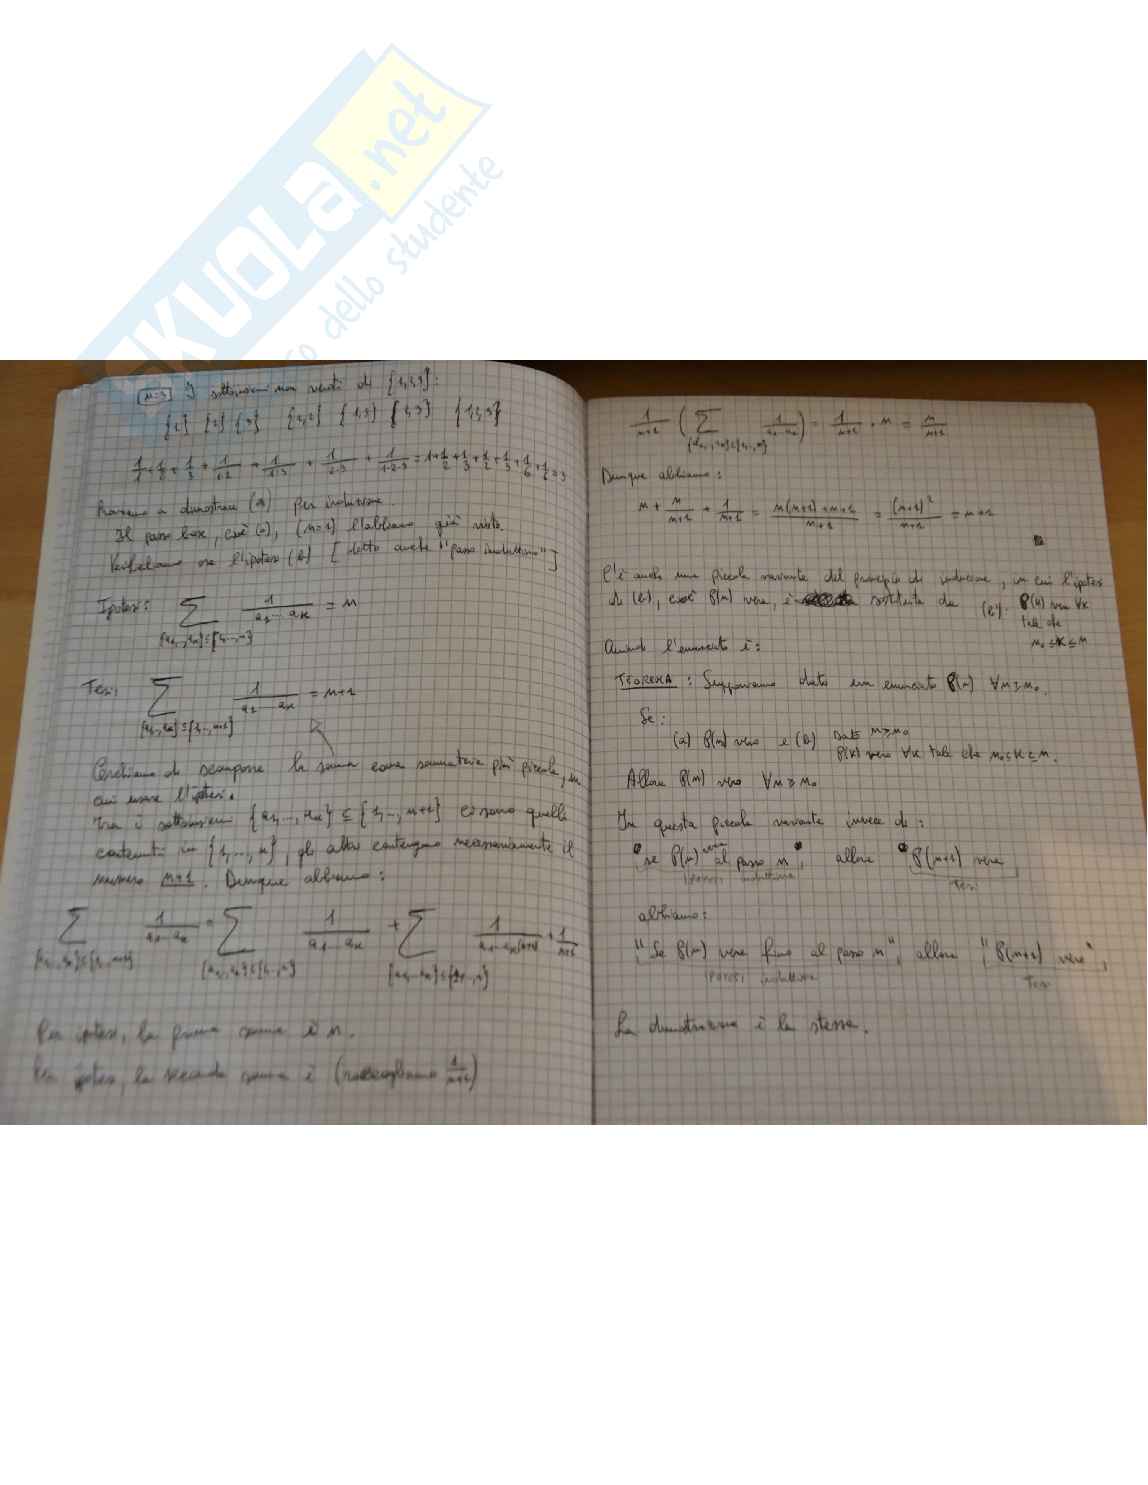 SKUOLA.net
dello studente
n=3 I sottoinsiemi non vuoti di {1,2,3}:
{1} {2} {3} {1,2} {1,3} {2,3} {1,2,3}
1/1 + 1/2 + 1/3 + 1/1·2 + 1/1·3 + 1/2·3 + 1/1·2·3 = 1 + 1/2 + 1/3 + 1/2 + 1/3 + 1/6 + 1/6 = 3
Proviamo a dimostrare (a) per induzione.
Il passo base, cioè (a), (n=1) l'abbiamo già visto.
Verifichiamo ora l'ipotesi (b) [detto anche "passo induttivo"]
Ipotesi: ∑ 1/a1...ak = n
{a1,..,ak}⊆{1,..,n}
Tesi: ∑ 1/a1...ak = n+1
{a1,..,ak}⊆{1,..,n+1}
Cerchiamo di scomporre la somma come sommatorie più piccole, in
cui usare l'ipotesi.
Tra i sottoinsiemi {a1,..,ak} ⊆ {1,..,n+1} ci sono quelli
contenuti in {1,..,n}, gli altri contengono necessariamente il
numero n+1. Dunque abbiamo:
∑ 1/a1...ak = ∑ 1/a1...ak + ∑ 1/a1...ak(n+1) + 1/n+1
{a1,..,ak}⊆{1,..,n+1} {a1,..,ak}⊆{1,..,n} {a1,..,ak}⊆{1,..,n}
Per ipotesi, la prima somma è n.
Per ipotesi, la seconda somma è (raccogliamo 1/n+1)
1/n+1 (∑ 1/a1...ak) = 1/n+1 · n = n/n+1
{a1,..,ak}⊆{1,..,n}
Dunque abbiamo:
n + n/n+1 + 1/n+1 = n(n+1)+n+1/n+1 = (n+1)²/n+1 = n+1
C'è anche una piccola variante del principio di induzione, in cui l'ipotesi
di (b), cioè P(n) vera, è sostituita da (b'): P(k) vera ∀k
tale che
n0 ≤ k ≤ n
Quando l'enunciato è:
TEOREMA: Supponiamo dato un enunciato P(n) ∀n ≥ n0.
Se:
(a) P(n0) vero e (b) Dato n ≥ n0
P(k) vero ∀k tale che n0 ≤ k ≤ n.
Allora P(n) vero ∀n ≥ n0
In questa piccola variante invece di:
"se P(n) vera al passo n", allora "P(n+1) vera"
Ipotesi induttiva Tesi
abbiamo:
"Se P(n) vera fino al passo n", allora "P(n+1) vera",
Ipotesi induttiva Tesi
La dimostrazione è la stessa.